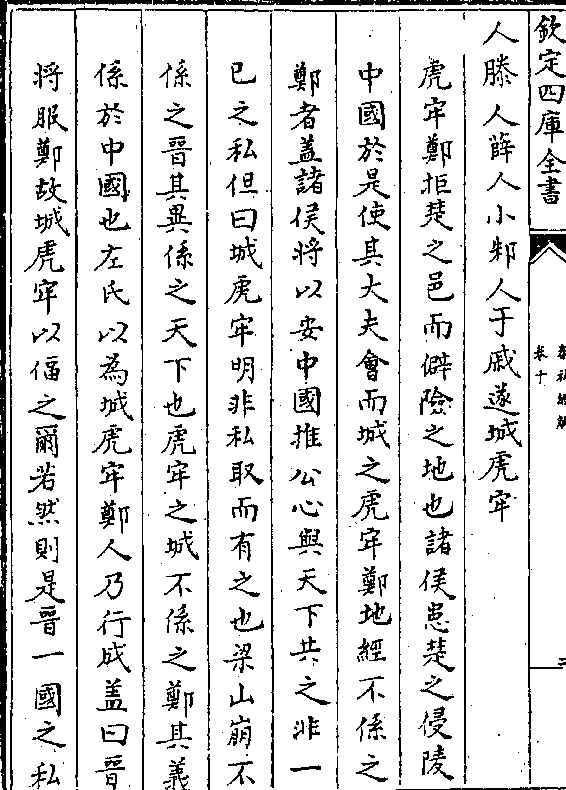 欽定四庫全書
卷十
三
人滕人薛人小邾人于戚遂城虎牢
虎牢鄭拒楚之邑而僻險之地也諸侯患楚之侵陵
中國於是使其大夫會而城之虎牢鄭地經不係之
鄭者蓋諸侯將以安中國推公心與天下共之非一
已之私但曰城虎牢明非私取而有之也梁山崩不
係之晉其異係之天下也虎牢之城不係之鄭其義
係於中國也左氏以為城虎牢鄭人乃行成蓋曰晉
將服鄭故城虎牢以偪之爾若然則是晉一國之私